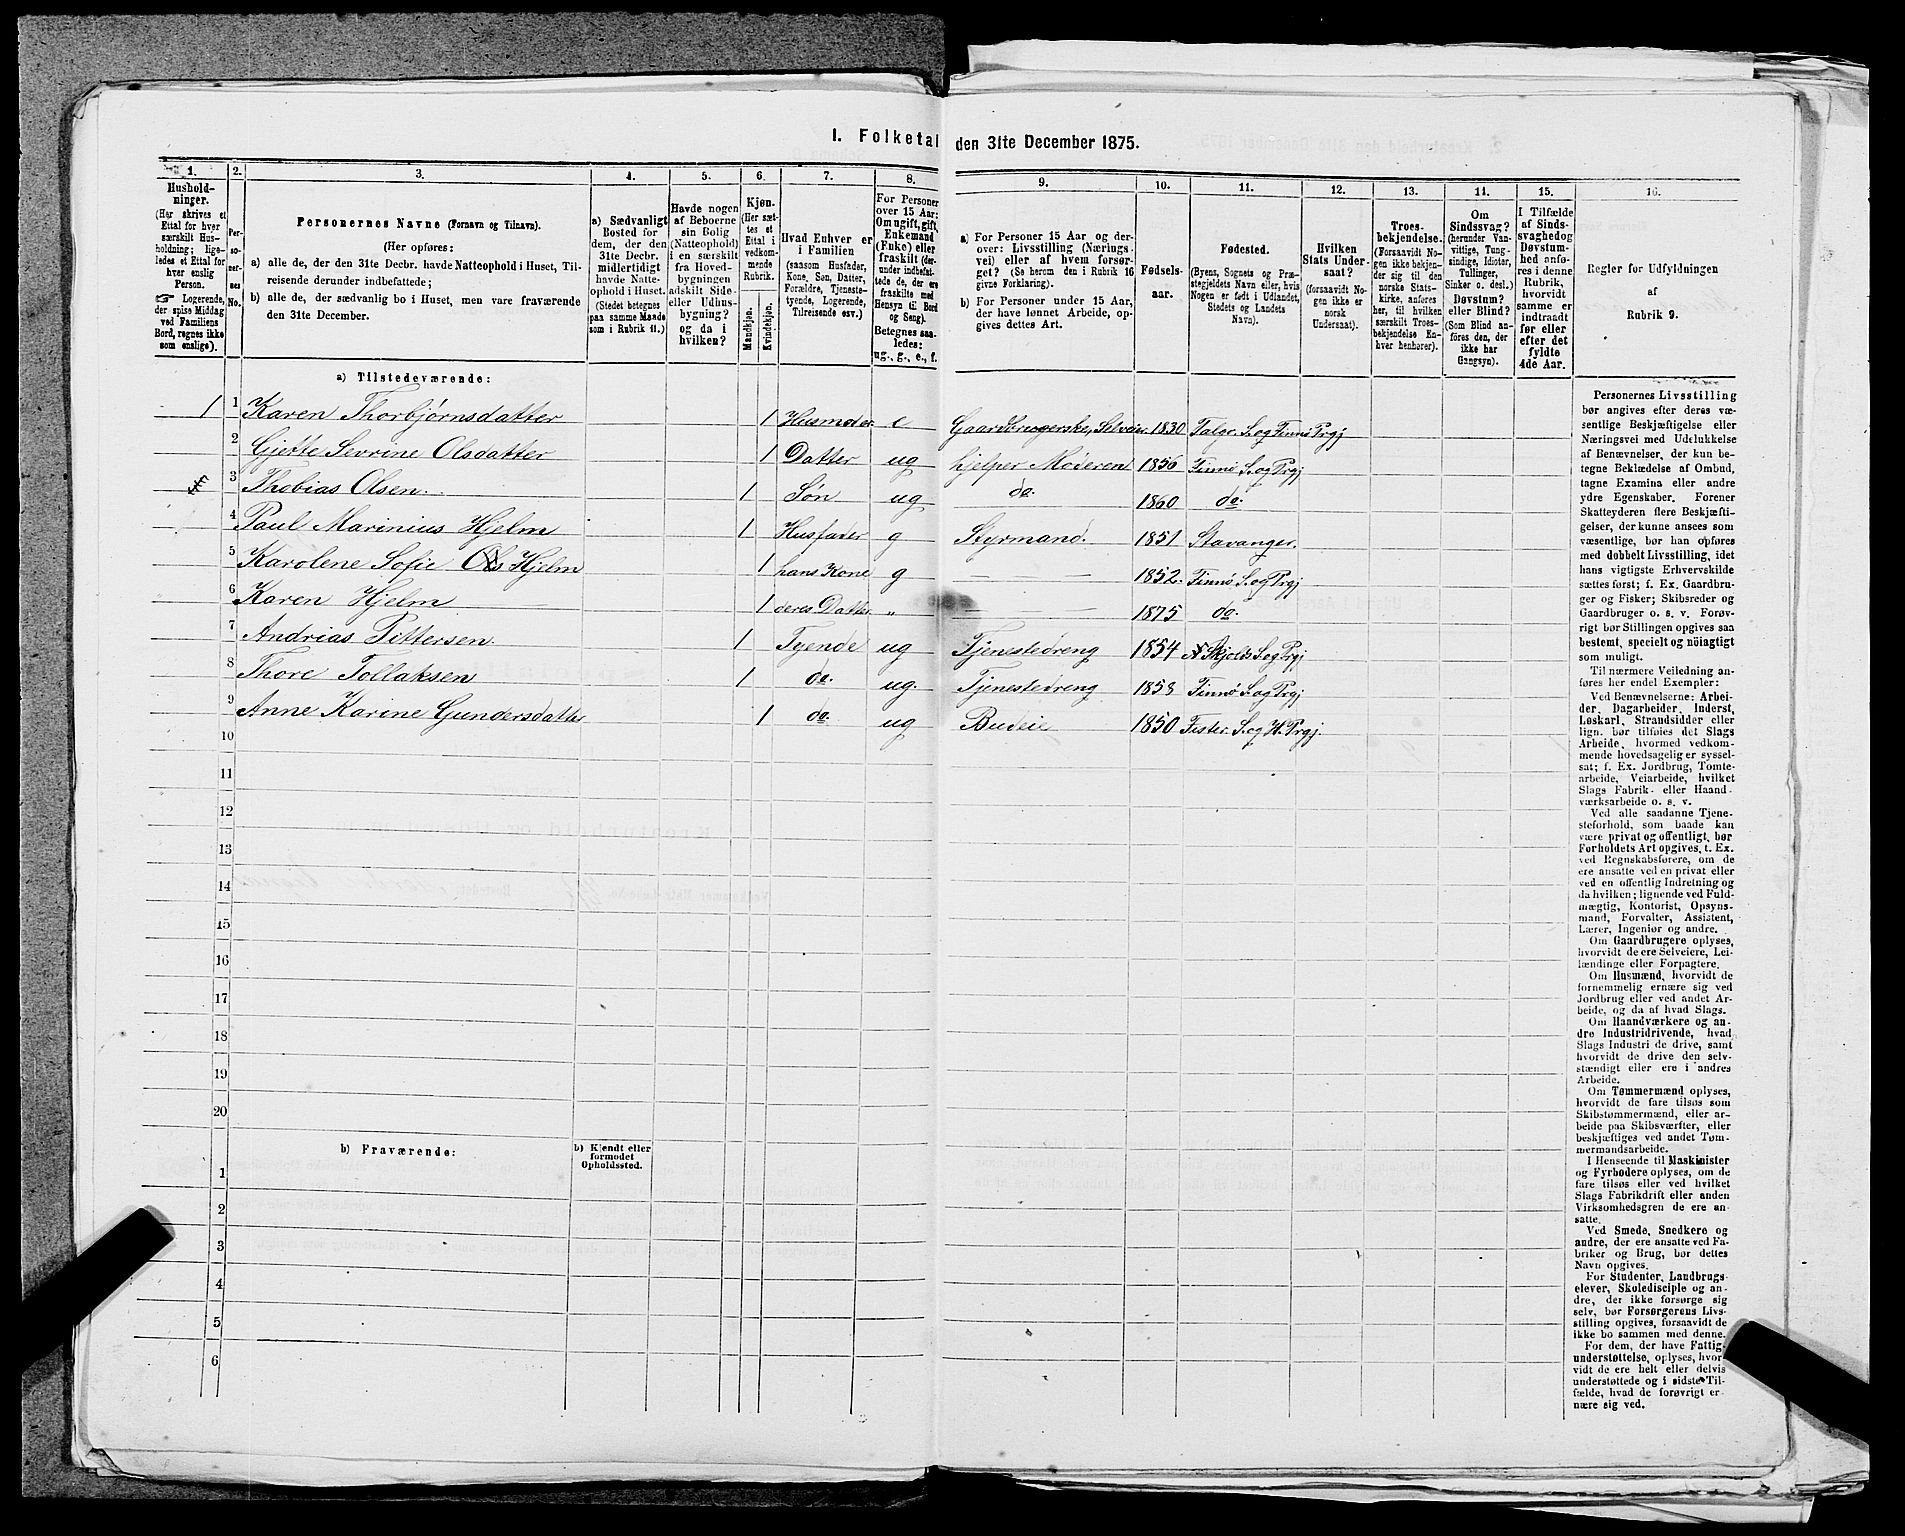 I. Folketal den 31te December 1875.
1.
Hushold-
ninger.
(Her skrives et
Ettal for hver
særskilt Hus-
holdning; lige-
ledes et Ettal for
hver enslig
Person.
☞ Logerende,
der spise Middag
ved Familiens
Bord, regnes ikke
som enslige).
2.
Per-
so-
ner-
nes
No.
3.
Personernes Navne (Fornavn og Tilnavn).
(Her opføres:
a) alle de, der den 31te Decbr. havde Natteophold i Huset, Til-
reisende derunder indbefattede;
b) alle de, der sædvanlig bo i Huset, men vare fraværende
den 31te December.
4.
a) Sædvanligt
Bosted for
dem, der den
31te Decbr.
midlertidigt
havde Natte-
ophold i Huset.
(Stedet betegnes
paa samme Maade
som i Rubrik 11.)
5.
Havde nogen
af Beboerne
sin Bolig
(Natteophold)
i en særskilt
fra Hoved-
bygningen
adskilt Side-
eller Udhus-
bygning?
og da i
hvilken?
6.
Kjøn.
(Her sæt-
tes et
Ettal i
vedkom-
mende
Rubrik.
Mandkjøn.
Kvindekjøn.
7.
Hvad Enhver er
i Familien
(saasom Husfader,
Kone, Søn, Datter,
Forældre, Tjeneste-
tyende, Logerende,
Tilreisende osv.)
8.
For Personer
over 15 Aar:
Om ugift, gift,
Enkemand
(Enke) eller
fraskilt (der-
under indbefat-
tede de, der ere
fraskilte med
Hensyn til Bord
og Seng).
Betegnes saa-
ledes:
ug., g., e., f.
9.
a) For Personer 15 Aar og der-
over: Livsstilling (Nærings-
vei) eller af hvem forsør-
get? (Se herom den i Rubrik 16
givne Forklaring).
b) For Personer under 15 Aar,
der have lønnet Arbeide, op-
gives dettes Art.
10.
Fødsels-
aar.
11.
Fødested.
(Byens, Sognets og Præ-
stegjeldets Navn eller, hvis
Nogen er født i Udlandet,
Stedets og Landets
Navn).
12.
Hvilken
Stats Under-
saat?
(forsaavidt No-
gen ikke er
norsk
Undersaat).
13.
Troes-
bekjendelse.
(Forsaavidt No-
gen ikke bekjen-
der sig til den
norske Stats-
kirke, anføres
her, til hvilken
særskilt Troes-
bekjendelse En-
hver henhører).
14.
Om
Sindssvag?
(herunder Van-
vittige, Tung-
sindige, Idioter,
Tullinger,
Sinker o. desl.)
Døvstum?
eller Blind?
(Som Blind an-
føres den, der
ikke har
Gangsyn).
15.
I Tilfælde
af Sinds-
svaghed og
Døvstum-
hed anfø-
res i denne
Rubrik,
hvorvidt
samme er
indtraadt
før eller
efter det
fyldte
4de Aar.
16.
Regler for Udfyldningen
af
Rubrik 9.
a) Tilstedeværende:
1 1 Karen Thorbjørnsdatter 1 Husmoder e Gaardbrugerske, Selveier. 1830 Talge S. og Finnø Prgj
2 Gjette Sevrine Olsdatter 1 Datter ug hjelper Moderen 1856 Finnø S. og Prgj
3 Thobias Olsen. 1 Søn ug do. 1860 do.
4 Paul Marinius Hjelm 1 Husfader g Styrmand. 1851 Stavanger.
5 Karolene Sofie Hjelm 1 hans Kone g — — 1852. Finnø S. og Prgj
6 Karen Hjelm 1 deres Datter „ — — 1875 do.
7 Andrias Pittersen 1 Tyende ug Tjenestedreng 1854 Skjolds S. og Prgj
8 Thore Tollaksen 1 do. ug. Tjenestedreng 1858 Finnø S. og Prgj
9 Anne Karine Gundersdatter 1 do. ug Budeie 1850 Fister. S. og H. Prgj.
10
11
12
13
14
15
16
17
18
19
20
b) Fraværende:
b) Kjendt eller
formodet
Opholdssted.
1
2
3
4
5
6
Personernes Livsstilling
bør angives efter deres væ-
sentlige Beskjæftigelse eller
Næringsvei med Udelukkelse
af Benævnelser, der kun be-
tegne Beklædelse af Ombud,
tagne Examina eller andre
ydre Egenskaber. Forener
Skatteyderen flere Beskjæfti-
gelser, der kunne ansees som
væsentlige, bør han opføres
med dobbelt Livsstilling, idet
hans vigtigste Erhvervskilde
sættes først; f. Ex. Gaardbru-
ger og Fisker; Skibsreder og
Gaardbruger o. s. v. Forøv-
rigt bør Stillingen opgives saa
bestemt, specielt og nöiagtigt
som muligt.
Til nærmere Veiledning an-
føres her endel Exempler:
Ved Benævnelserne: Arbei-
der, Dagarbeider, Inderst,
Løskarl, Strandsidder eller
lign. bør tilføies det Slags
Arbeide, hvormed vedkom-
mende hovedsagelig er syssel-
sat; f. Ex. Jordbrug, Tomte-
arbeide, Veiarbeide, hvilket
Slags Fabrik- eller Haand-
værksarbeide o. s. v.
Ved alle saadanne Tjene-
steforhold, som baade kan
være privat og offentligt, bør
Forholdets Art opgives, t. Ex.
ved Regnskabsførere, om de
ere ansatte ved en privat eller
ved en offentlig Indretning og
da hvilken; lignende ved Fuld-
mægtig, Kontorist, Opsyns-
mand, Forvalter, Assistent,
Lærer, Ingeniør og andre.
Om Gaardbrugere oplyses,
hvorvidt de ere Selveiere, Lei-
lændinge eller Forpagtere.
Om Husmænd, hvorvidt de
fornemmelig ernære sig ved
Jordbrug eller ved andet Ar-
beide, og da af hvad Slags.
Om Haandværkere og an-
dre Industridrivende, hvad
Slags Industri de drive, samt
hvorvidt de drive den selv-
stændigt eller ere i andres
Arbeide.
Om Tømmermænd oplyses,
hvorvidt de fare tilsøs som
Skibstømmermænd, eller ar-
beide paa Skibsværfter, eller
beskjæftiges ved andet Tøm-
mermandsarbeide.
I Henseende til Maskinister
og Fyrbødere oplyses, om de
fare tilsøs eller ved hvilket
Slags Fabrikdrift eller anden
Virksomhedsgren de ere an-
satte.
Ved Smede, Snedkere og
andre, der ere ansatte ved Fa-
briker og Brug, bør dettes
Navn opgives.
For Studenter, Landbrugs-
elever, Skoledisciple og an-
dre, der ikke forsørge sig
selv, bør Forsørgerens Livs-
stilling opgives, forsaavidt de
ikke bo sammen med denne.
For dem, der have Fattig-
understøttelse, oplyses, hvor-
vidt de ere helt eller delvis
understøttede og i sidste Til-
fælde, hvad de forøvrigt er-
nære sig ved.